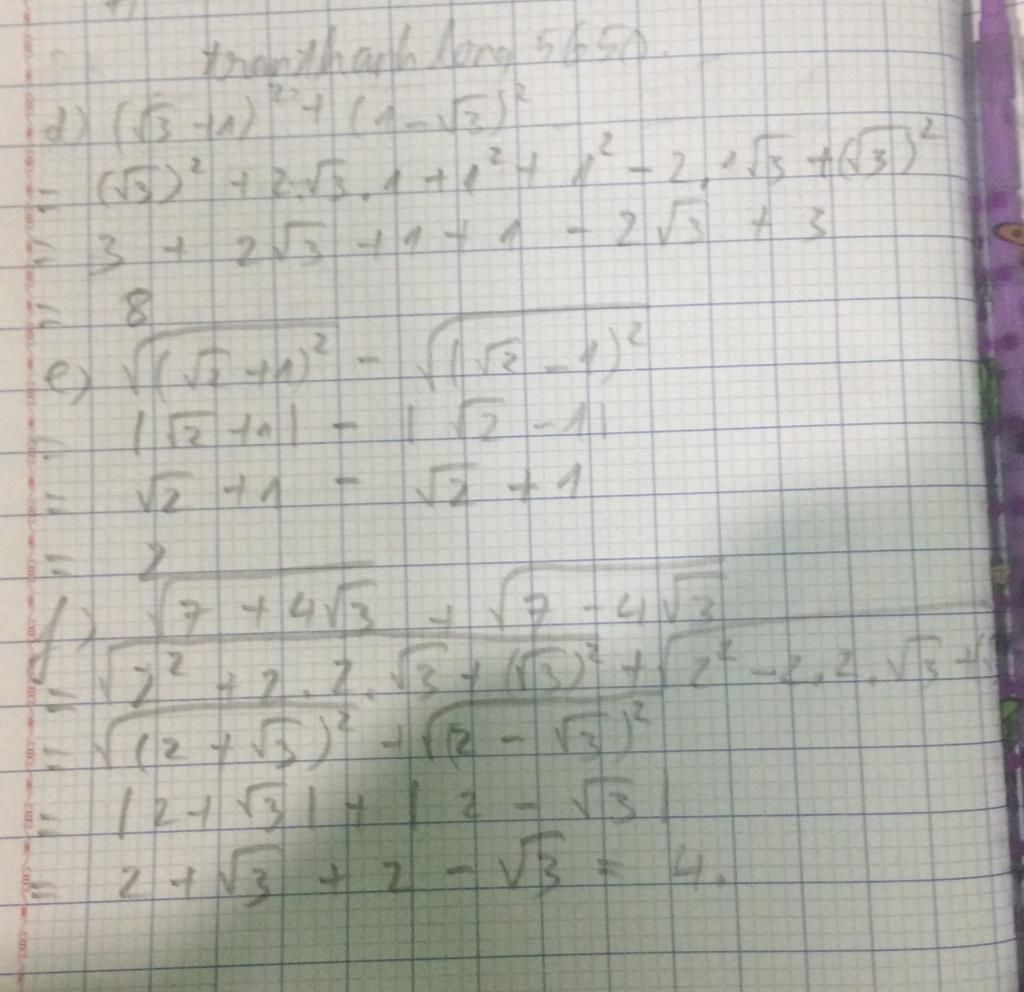 tranthanhlong5650
d) (√3 + 1)² + (1 - √3)²
= (√3)² + 2.√3.1 + 1² + 1² - 2.1√3 + (√3)²
= 3 + 2√3 + 1 + 1 - 2√3 + 3
= 8
e) √((√2 + 1)²) - √((√2 - 1)²)
= |√2 + 1| - |√2 - 1|
= √2 + 1 - √2 + 1
= 2
f) √(7 + 4√3) + √(7 - 4√3)
= √(2² + 2.2.√3 + (√3)²) + √(2² - 2.2.√3 + (√
= √((2 + √3)²) + √((2 - √3)²)
= |2 + √3| + |2 - √3|
= 2 + √3 + 2 - √3 = 4.